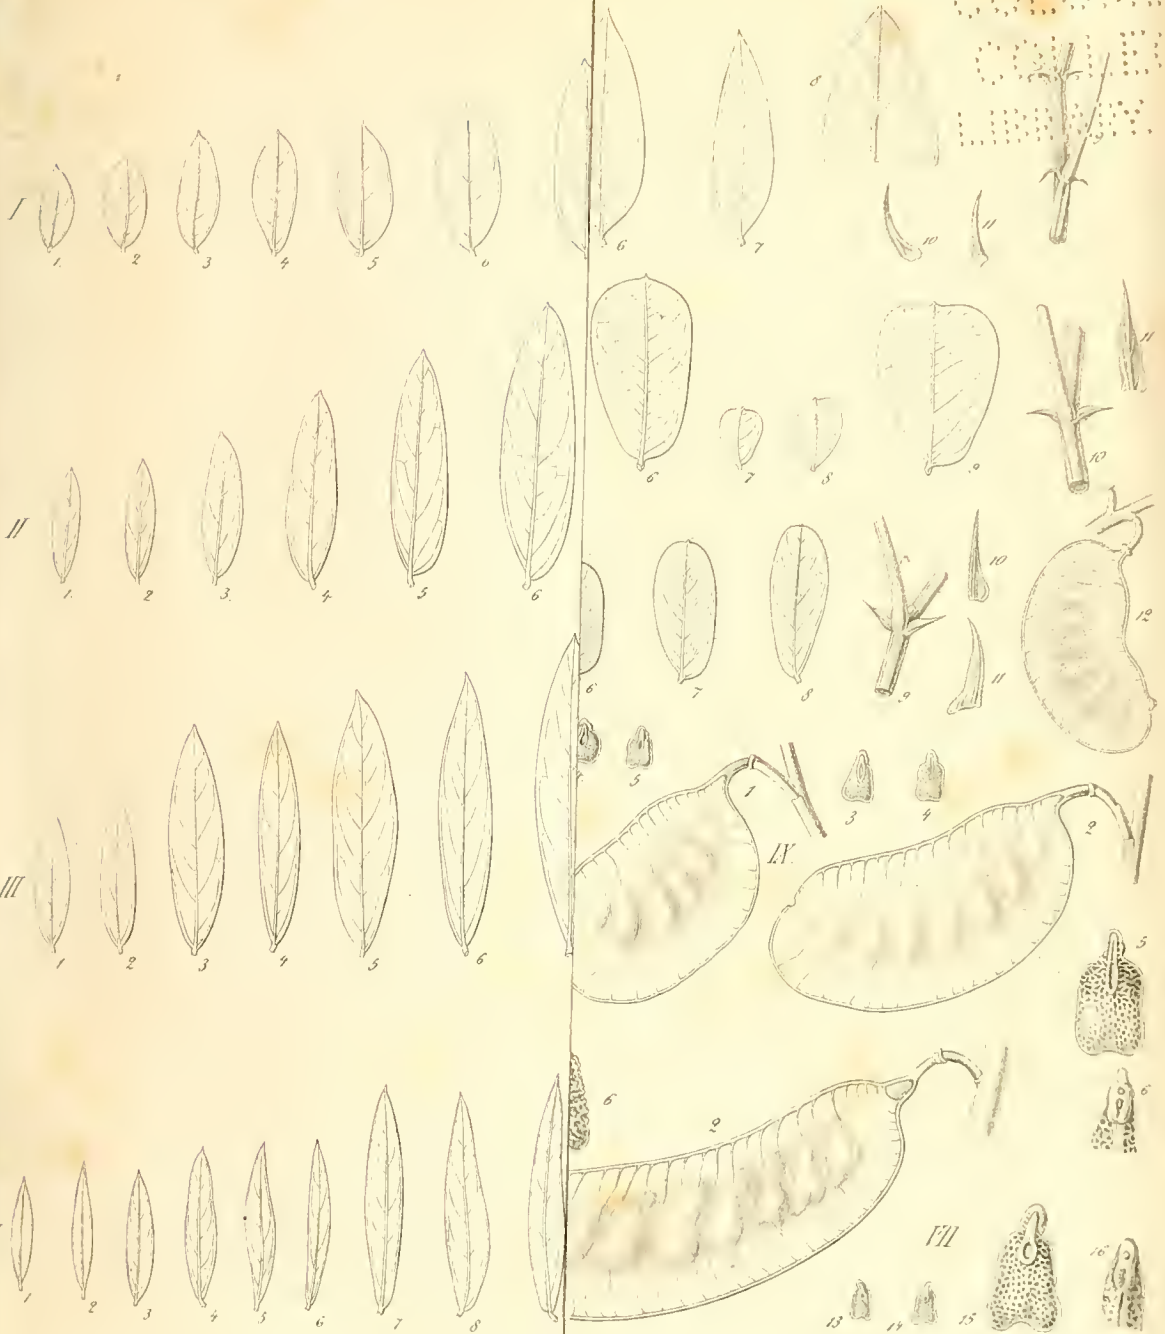 COLLE
LIBRARY.
I
1. 2 3 4 5 6
6 7 8 9 10 11
II
1. 2 3. 4 5 6
6 7 8 9 10 11
6 7 8 9 10 11 12
III
1 2 3 4 5 6
5 1 3 4 2
IX.
5
6 2 6
1 2 3 4 5 6 7 8
VII
13 14 15 16